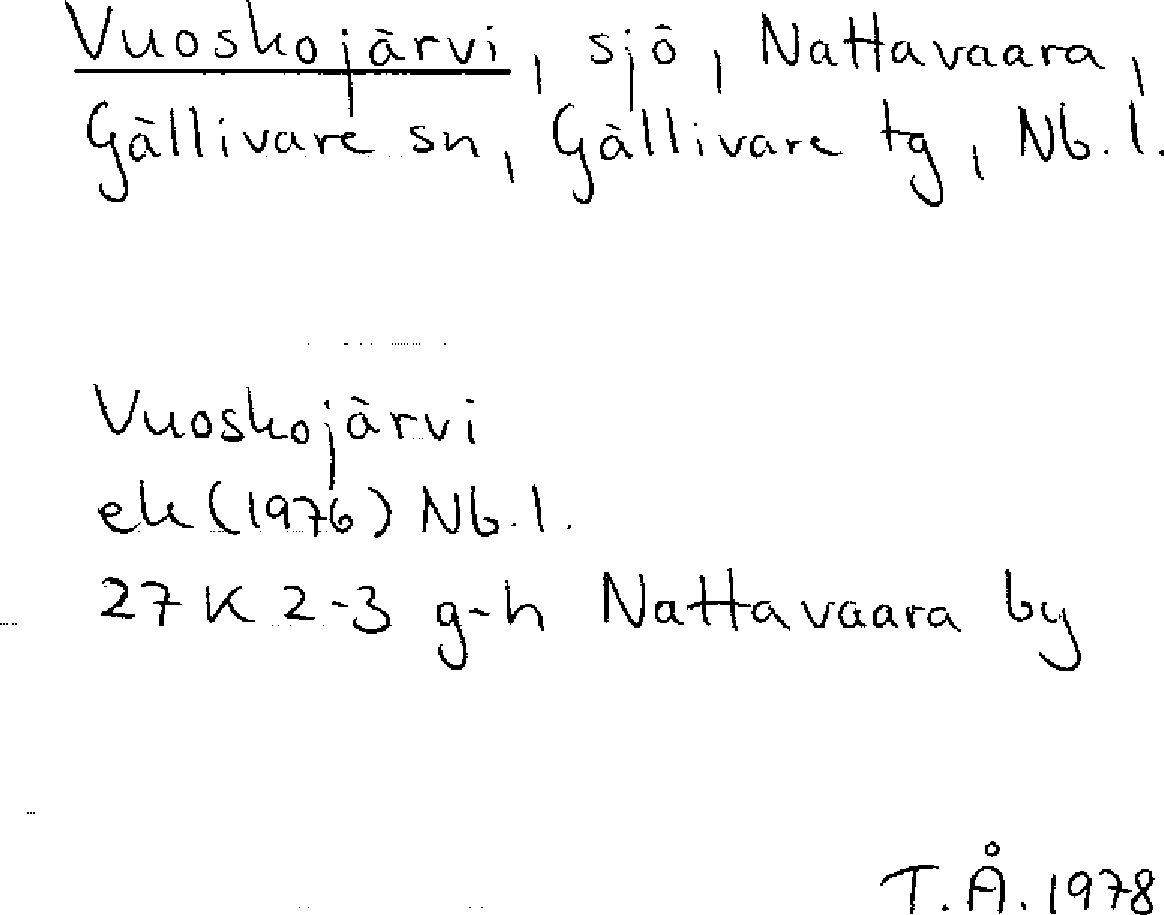 Vuoskojärvi, sjö, Nattavaara,
Gällivare sn, Gällivare tg, Nb.l.
Vuoskojärvi
ek (1976) Nb.l.
27 K 2-3 g-h Nattavaara by
T.Å. 1978